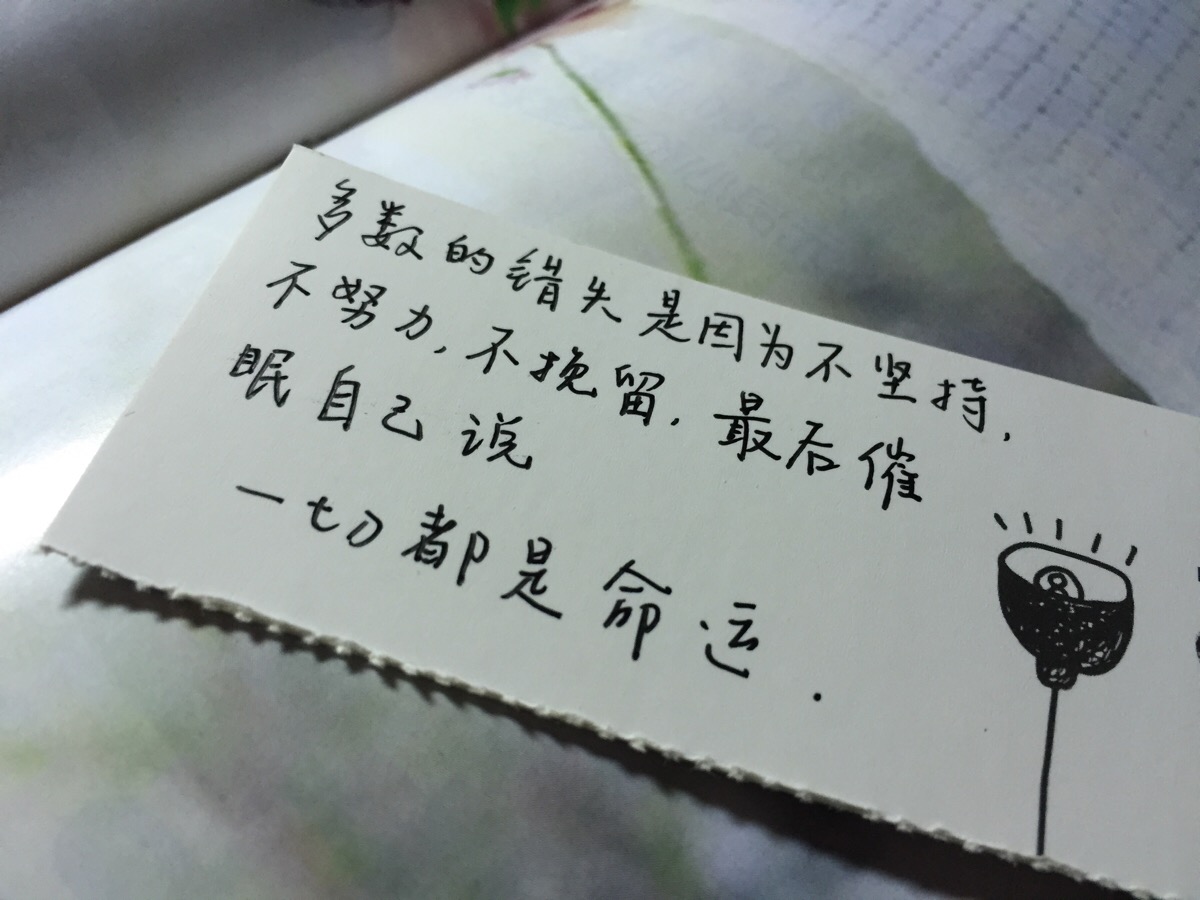 多数的错失是因为不坚持,
不努力,不挽留.最后催
眠自己说
一切都是命运.
8